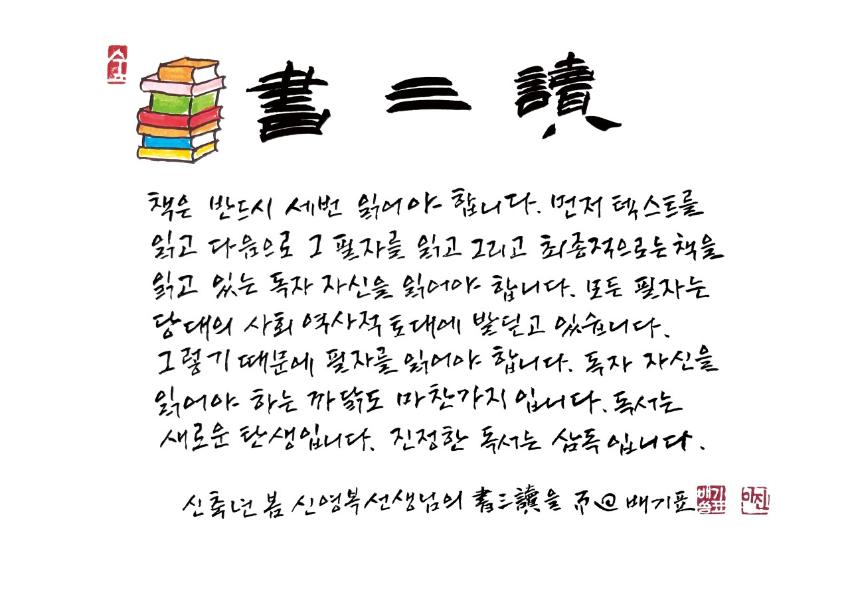 書三讀
책은 반드시 세번 읽어야 합니다. 먼저 텍스트를
읽고 다음으로 그 필자를 읽고 그리고 최종적으로는 책을
읽고 있는 독자 자신을 읽어야 합니다. 모든 필자는
당대의 사회 역사적 토대에 발딛고 있습니다.
그렇기 때문에 필자를 읽어야 합니다. 독자 자신을
읽어야 하는 까닭도 마찬가지입니다. 독서는
새로운 탄생입니다. 진정한 독서는 삼독입니다.
신축년 봄 신영복선생님의 書三讀을 배기표